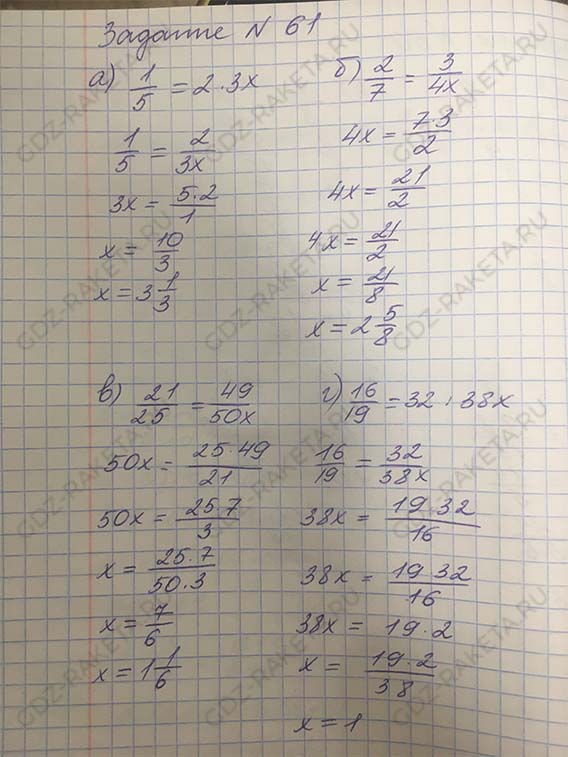 Задание № 61
а) 1/5 = 2 · 3x
1/5 = 2/3x
3x = 5·2/1
x = 10/3
x = 3 1/3
б) 2/7 = 3/4x
4x = 7·3/2
4x = 21/2
4x = 21/2
x = 21/8
x = 2 5/8
в) 21/25 = 49/50x
50x = 25·49/21
50x = 25·7/3
x = 25·7/50·3
x = 7/6
x = 1 1/6
г) 16/19 = 32 : 38x
16/19 = 32/38x
38x = 19·32/16
38x = 19·32/16
38x = 19·2
x = 19·2/38
x = 1
GDZ-RAKETA.RU